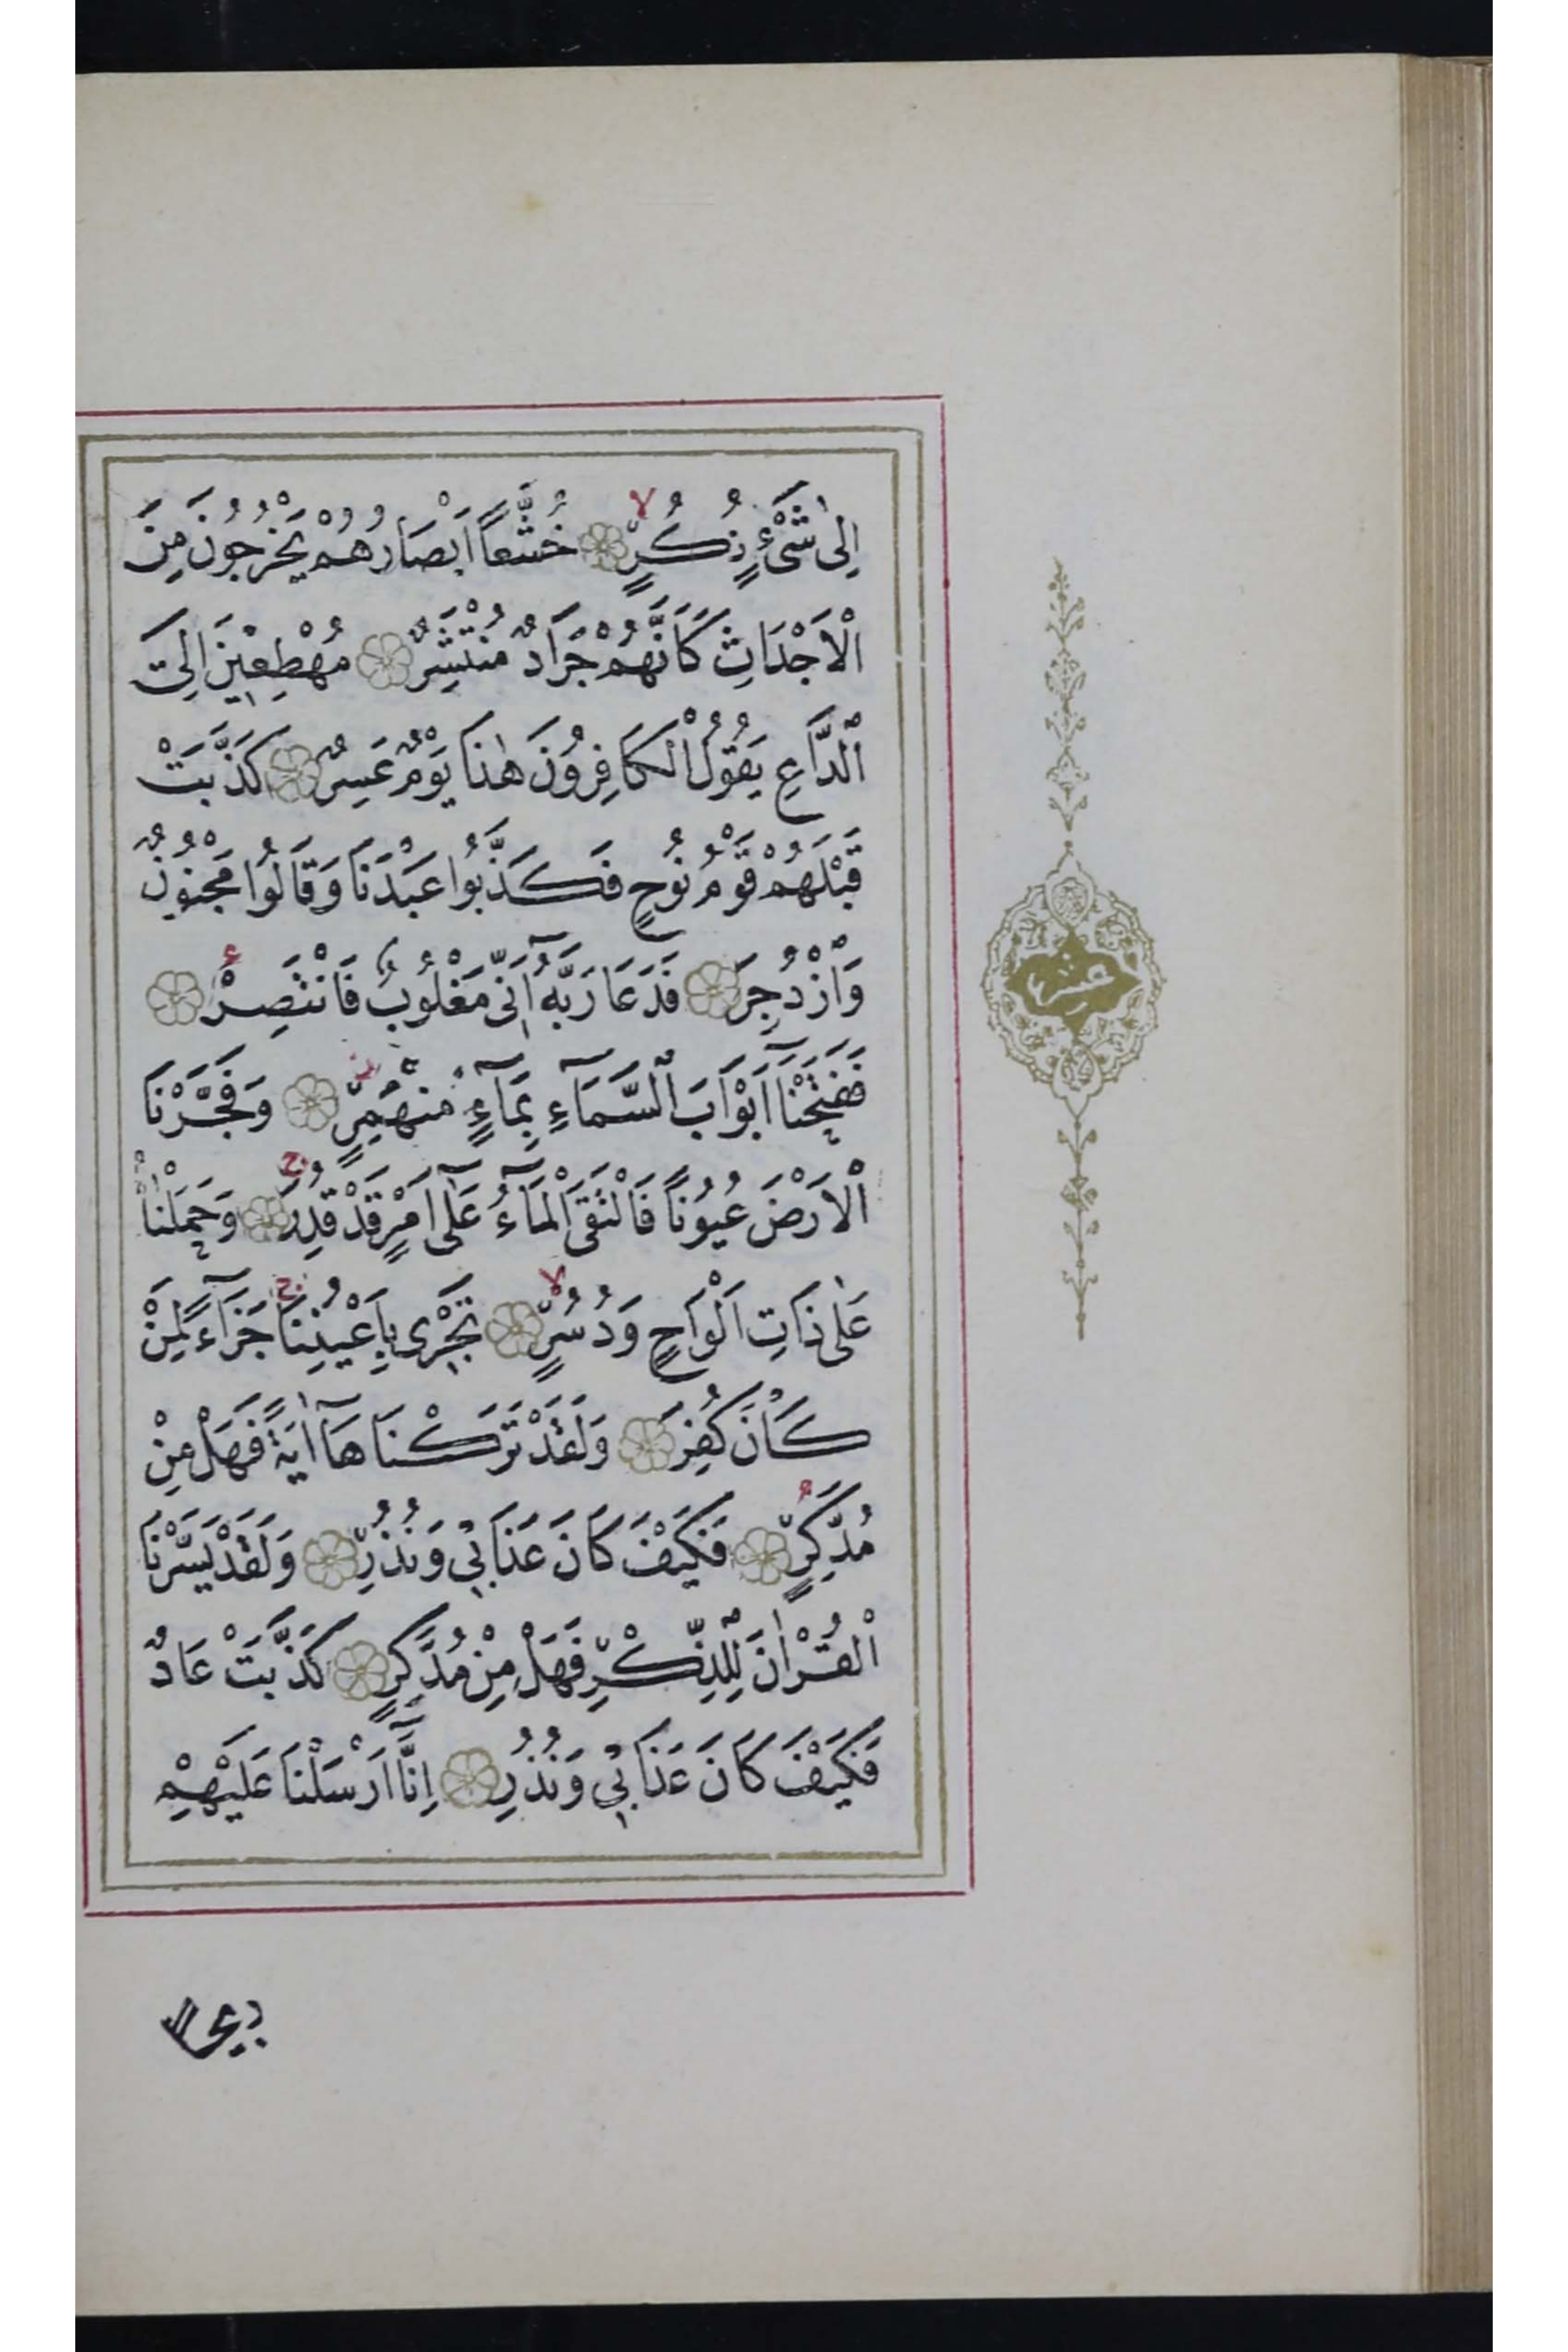 اِلٰى شَىْءٍ نُكُرٍ خُشَّعاً اَبْصَارُهُمْ يَخْرُجُونَ مِنَ
الْاَجْدَاثِ كَاَنَّهُمْ جَرَادٌ مُنْتَشِرٌ مُهْطِعِينَ اِلَى
الدَّاعِ يَقُولُ الْكَافِرُونَ هٰذَا يَوْمٌ عَسِرٌ كَذَّبَتْ
قَبْلَهُمْ قَوْمُ نُوحٍ فَكَذَّبُوا عَبْدَنَا وَقَالُوا مَجْنُونٌ
وَازْدُجِرَ فَدَعَا رَبَّهُٓ اَنِّى مَغْلُوبٌ فَانْتَصِرْ
فَفَتَحْنَٓا اَبْوَابَ السَّمَٓاءِ بِمَٓاءٍ مُنْهَمِرٍ وَفَجَّرْنَا
الْاَرْضَ عُيُوناً فَالْتَقَى الْمَٓاءُ عَلٰٓى اَمْرٍ قَدْ قُدِرَ وَحَمَلْنَاهُ
عَلٰى ذَاتِ اَلْوَاحٍ وَدُسُرٍ تَجْرِى بِاَعْيُنِنَا جَزَٓاءً لِمَنْ
كَانَ كُفِرَ وَلَقَدْ تَرَكْنَاهَٓا اٰيَةً فَهَلْ مِنْ
مُدَّكِرٍ فَكَيْفَ كَانَ عَذَابِى وَنُذُرِ وَلَقَدْ يَسَّرْنَا
الْقُرْاٰنَ لِلذِّكْرِ فَهَلْ مِنْ مُدَّكِرٍ كَذَّبَتْ عَادٌ
فَكَيْفَ كَانَ عَذَابِى وَنُذُرِ اِنَّٓا اَرْسَلْنَا عَلَيْهِمْ
ريحا